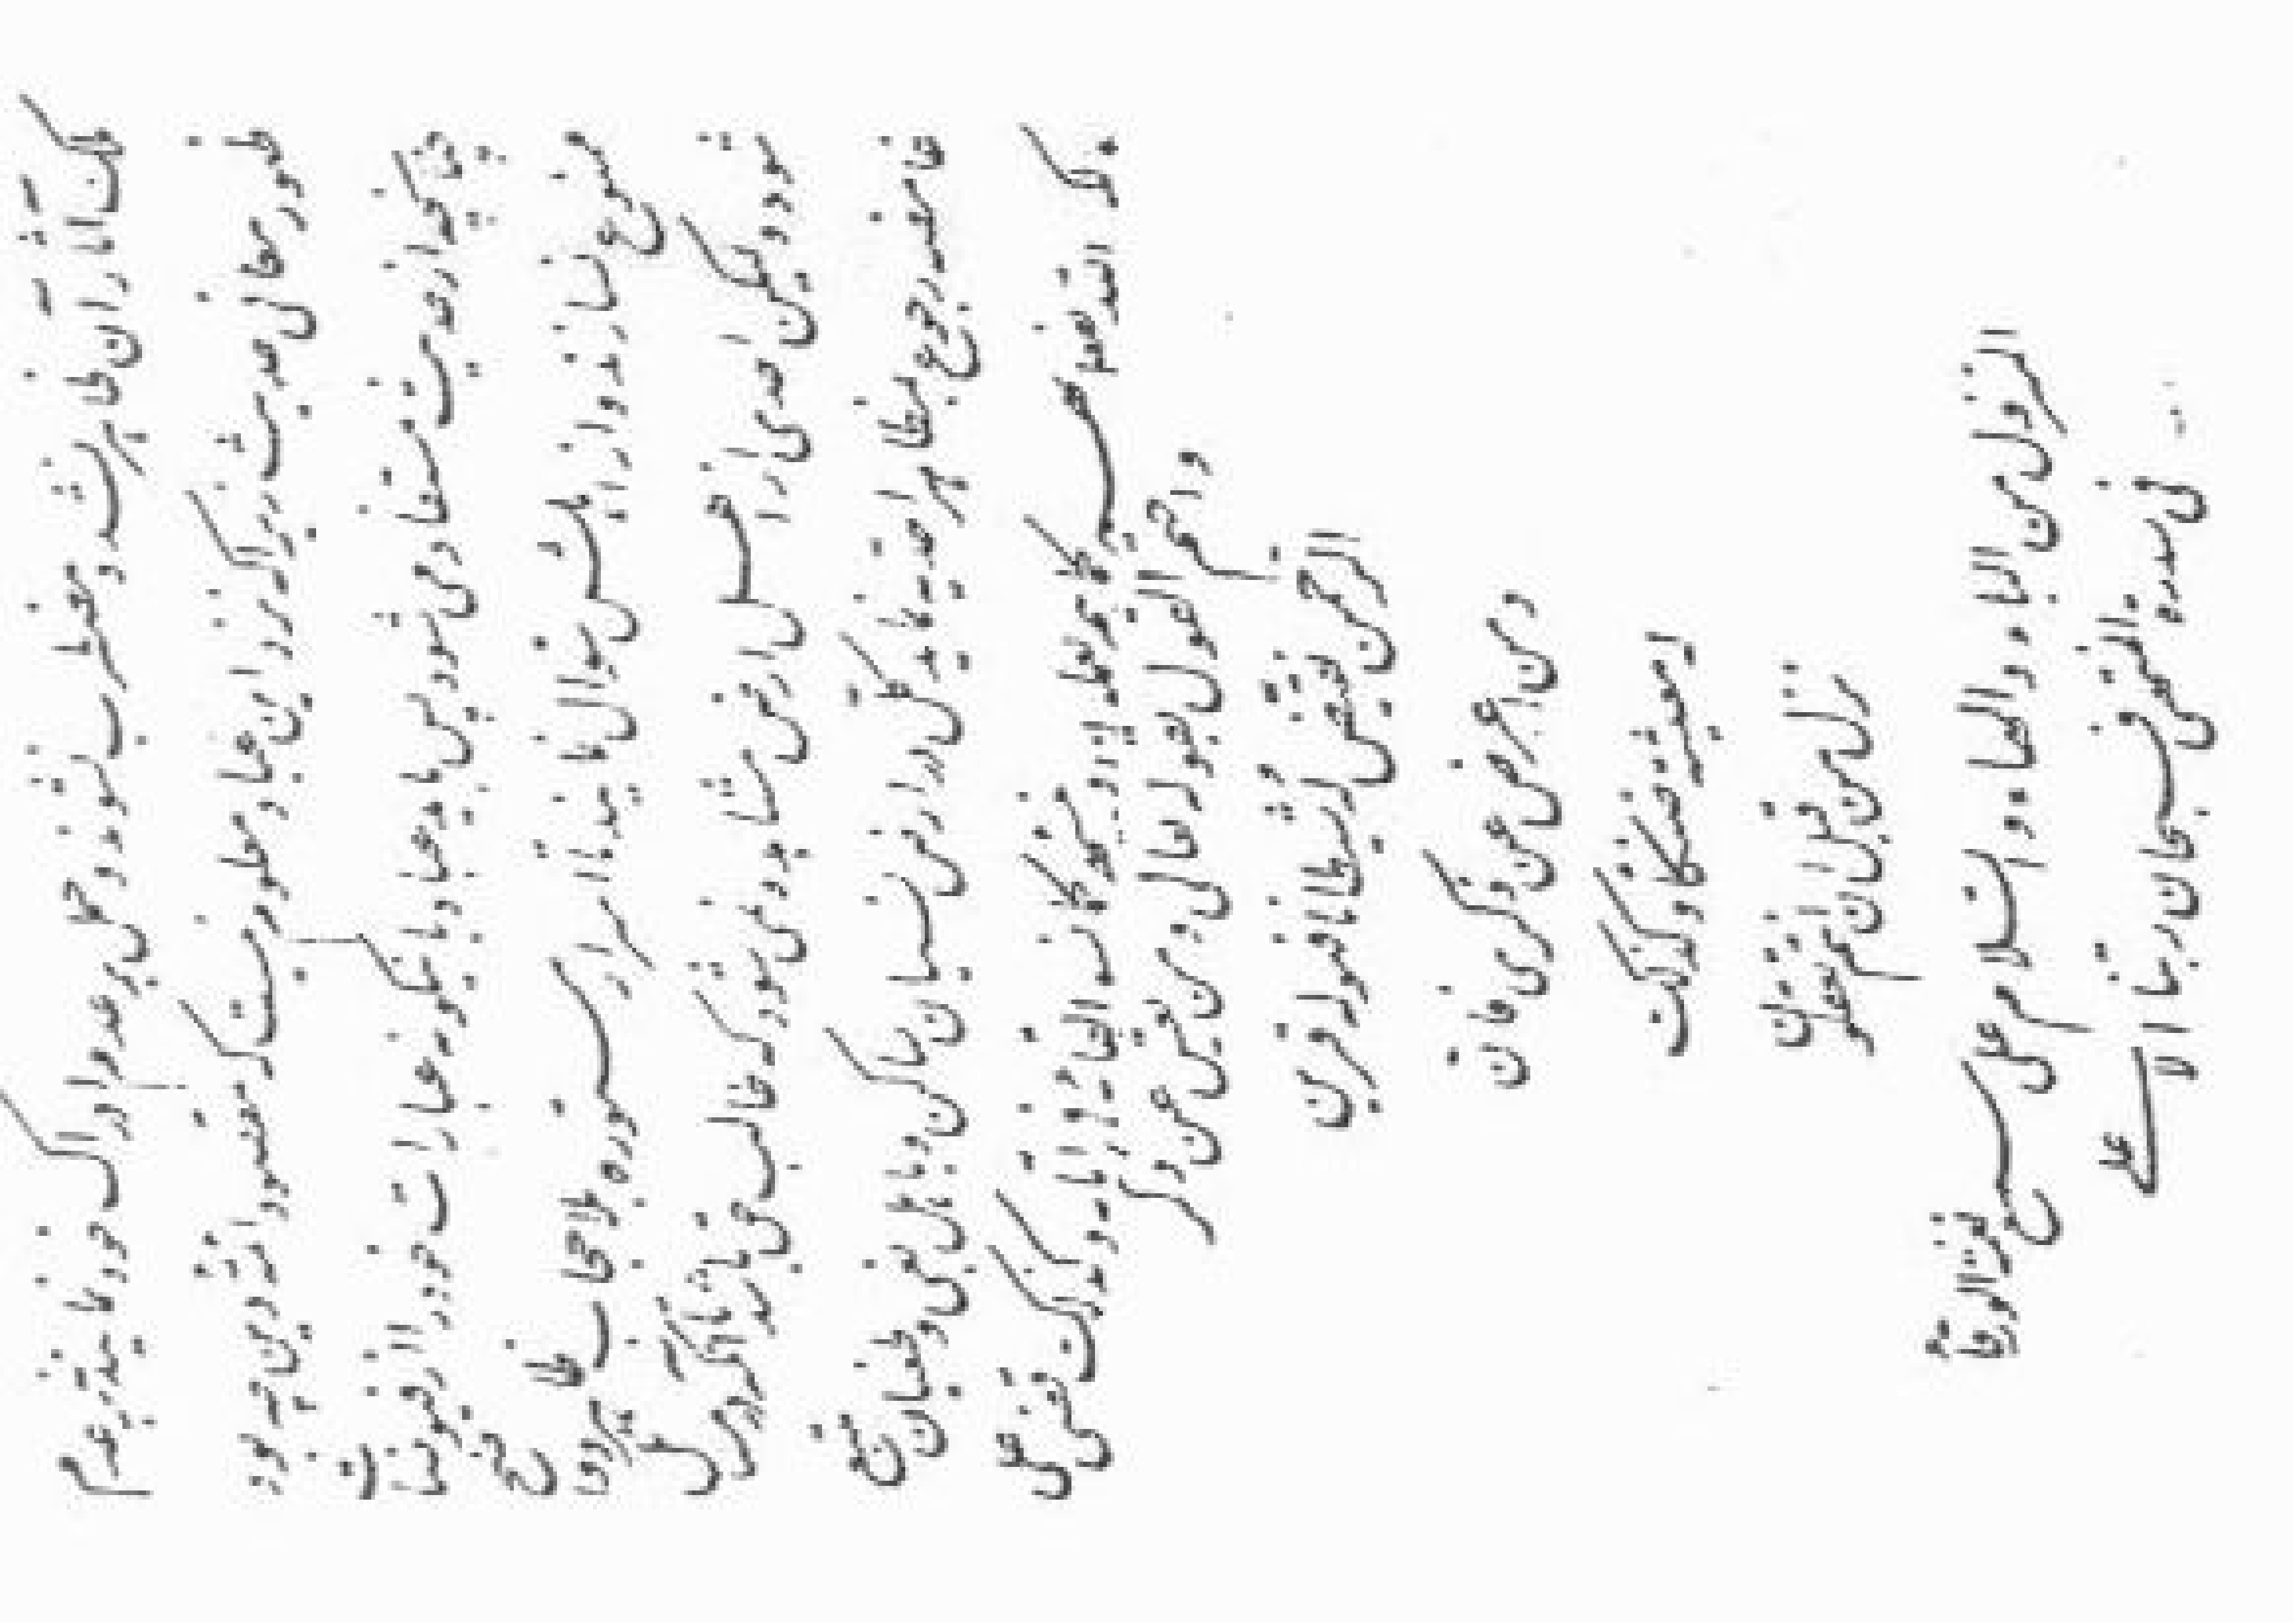 ملک آثار آن ظاهر نشد و مضطرب نشوند و حمل بر عدم ادراک خود نمایند نه بر عدم
ظهور معانی حدیث زیرا که نزد این عباد معلوم نیست که مقصود ائمه دین چه بود
چنانکه از حدیث مستفاد می شود پس باید عباد باینگونه عبارات خود را از فیوضات
ممنوع نسازند و از اهلش سؤال نمایند تا اسرار مستوره بلا حجاب ظاهر و واضح
شود ولیکن احدی از اهل ارض مشاهده نمی شود که طالب حق باشد تا آنکه در مسائل
غامضه رجوع بمظاهر احدیه نماید کل در ارض نسیان ساکن و باهل بغی و طغیان متبع
ولکن الله یفعل بهم کما هم یعملون و ینسیهم کما نسوا لقائه فی ایامه و کذلک قضی علی
و اختم القول بقوله تعالی و من یعش عن ذکر
الرحمن نقیض له شیطانا فهو له قرین
و من اعرض عن ذکری فان
له معیشة ضنکا و کذلک
نزل من قبل ان انتم تعقلون
المنزول من الباء و الهاء و السلام علی من سمع نغمة الورقاء
فی سدرة المنتهی فسبحان ربنا الاعلی